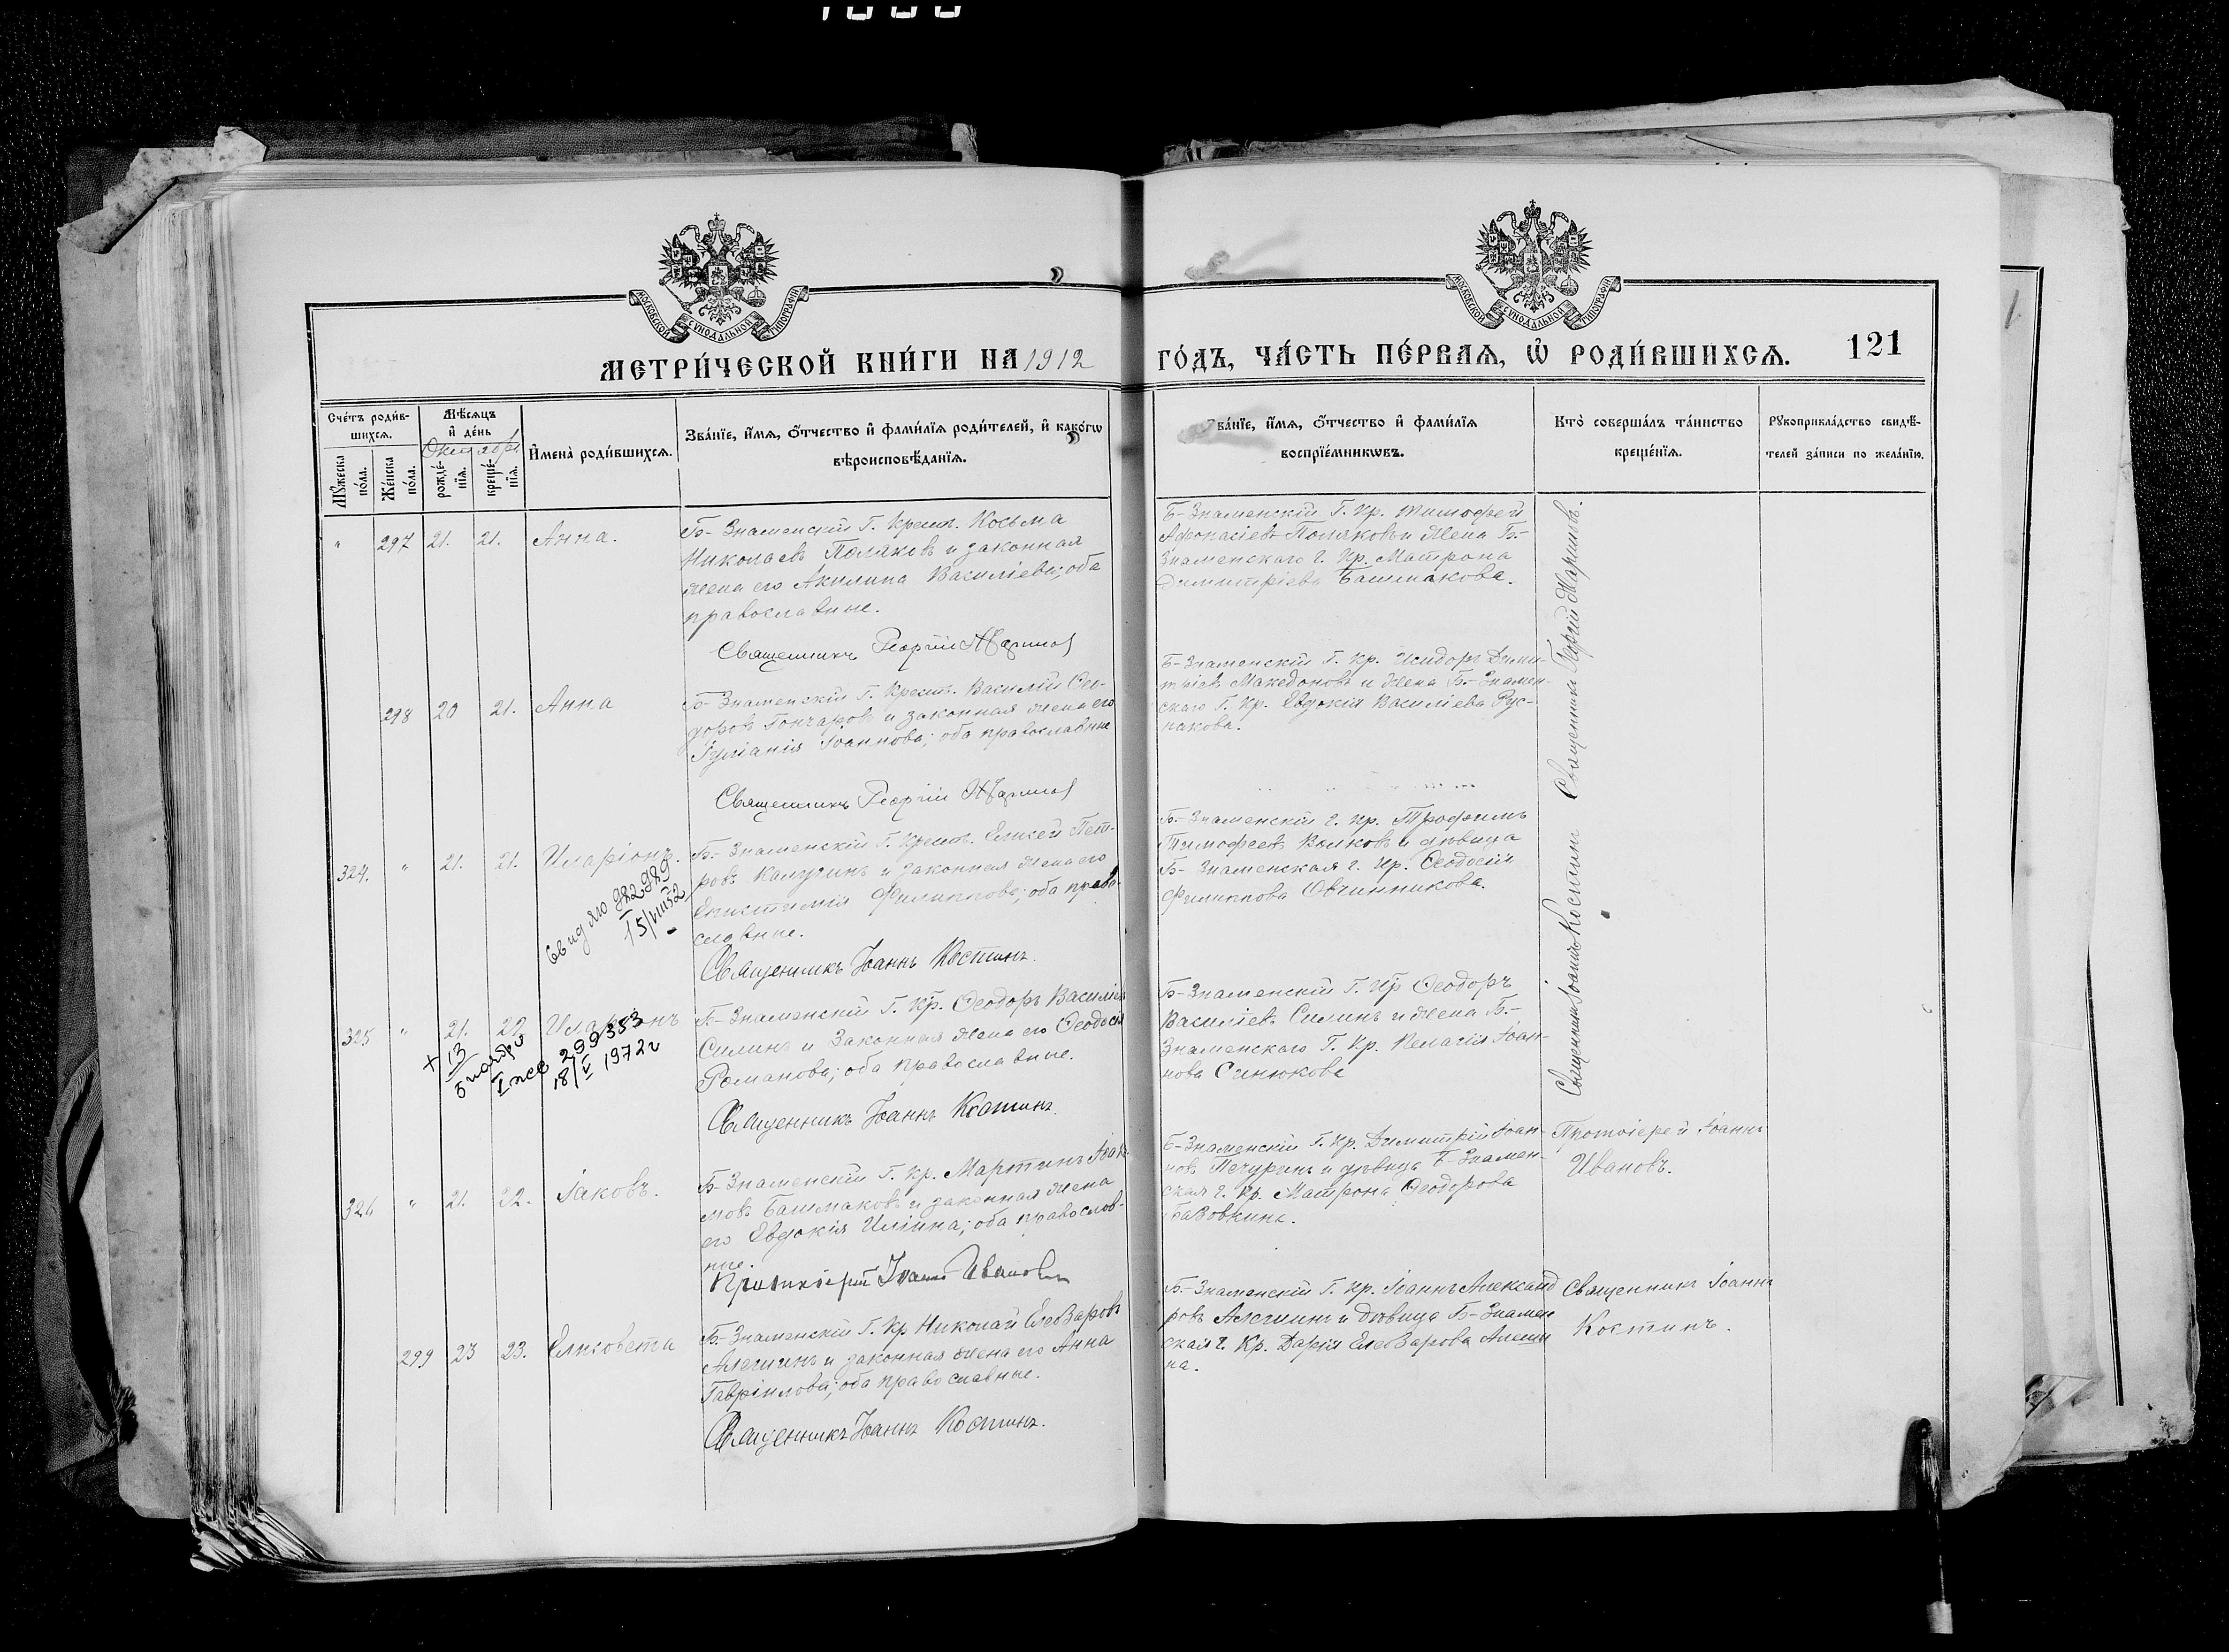 МОСКОВСКОЙ СУНОДАЛЬНОЙ ТИПОГРАФІИ
МОСКОВСКОЙ СУНОДАЛЬНОЙ ТИПОГРАФІИ
МЕТРИ́ЧЕСКОЙ КНИ́ГИ НА 1912 ГО́ДЪ, ЧА́СТЬ ПЕ́РВАѦ, Ѽ РОДИ́ВШИХСѦ.
121
Сче́тъ роди́в-
шихсѧ.
Мꙋ́жеска по́ла.
Же́нска по́ла.
Мѣ́сѧцъ
и҆ де́нь
Октябрь
рожде́-
нїѧ.
креще́-
нїѧ.
И҆мена̀ роди́вшихсѧ.
Зва́нїе, и҆́мѧ, ѻ҆́тчество и҆ фами́лїѧ роди́телей, и҆ како́гѡ
вѣроисповѣ́данїѧ.
Зва́нїе, и҆́мѧ, ѻ҆́тчество и҆ фами́лїѧ
воспрїе́мникѡвъ.
Кто̀ соверша́лъ та́инство
креще́нїѧ.
Рꙋкоприкла́дство свидѣ́-
телей за́писи по жела́нїю.
" 297 21. 21. Анна.
Б-Знаменскій Г. Крест. Косьма
Николаевъ Поляковъ и законная
жена его Акилина Васильева; оба
православные.
Священникъ Георгій
Б-Знаменскій Г. Кр. Тимофей
Афонасіевъ Поляковъ и жена Б.-
Знаменскаго г. Кр. Матрона
Димитріева Башмакова.
298 20 21. Анна
Б-Знаменскій Г. Крест. Василій Ѳео-
доровъ Гончаровъ и законная жена его
Іуліанія Іоаннова; оба православные
Священникъ Георгій
Б-Знаменскій Г. Кр. Исидоръ Дими-
тріевъ Македоновъ и жена Б.-Знамен-
скаго Г. Кр. Евдокія Васильева Рус-
накова.
Священникъ Георгій
324. " 21. 21. Иларіонъ.
Свид яго 982989
15/VIII 52
Б.-Знаменскій Г. Крест. Елисей Пет-
ровъ Калугинъ и законная жена его
Епистимія Филиппова; оба право-
славные.
Священникъ Іоаннъ Костинъ.
Б.-Знаменскій г. Кр. Трофимъ
Тимофеевъ Волковъ и дѣвица
Б-Знаменская г. Кр. Ѳеодосія
Филиппова Овчинникова.
Священникъ Іоаннъ Костинъ
325 " 21. 22. Иларіонъ
+ 13
5 ноября
299353
18/V 1972г
Б-Знаменскій Г. Кр. Ѳеодоръ Василіев
Силинъ и Законная жена его Ѳеодосія
Романова; оба православные.
Священникъ Іоаннъ Костинъ.
Б-Знаменскій Г. Кр Ѳеодоръ
Василіевъ Силинъ и жена Б.-
Знаменскаго Г. Кр. Пелагія Іоан-
нова Синюкова
326 " 21. 22. Іаковъ.
Б-Знаменскій Г. Кр. Мартинъ Іоан-
новъ Башмаковъ и законная жена
его Евдокія Иліина; оба православ-
ные.
Протоіерей Іоаннъ Ивановъ
Б-Знаменскій Г. Кр. Димитрій Іоан-
новъ Печуринъ и дѣвица Б-Знамен-
ская г. Кр. Матрона Ѳеодорова
Протоіерей Іоаннъ
Ивановъ.
299 23 23. Елисавета
Б-Знаменскій Г. Кр Николай Елеазаровъ
Алешинъ и законная жена его Анна
Гавріилова; оба православные.
Священникъ Іоаннъ Костинъ.
Б.-Знаменскій Г. Кр. Іоаннъ Александ
ровъ Алешинъ и дѣвица Б-Знамен
ская г. Кр. Дарія Елеазарова Алеши
на.
Священникъ Іоаннъ
Костинъ.